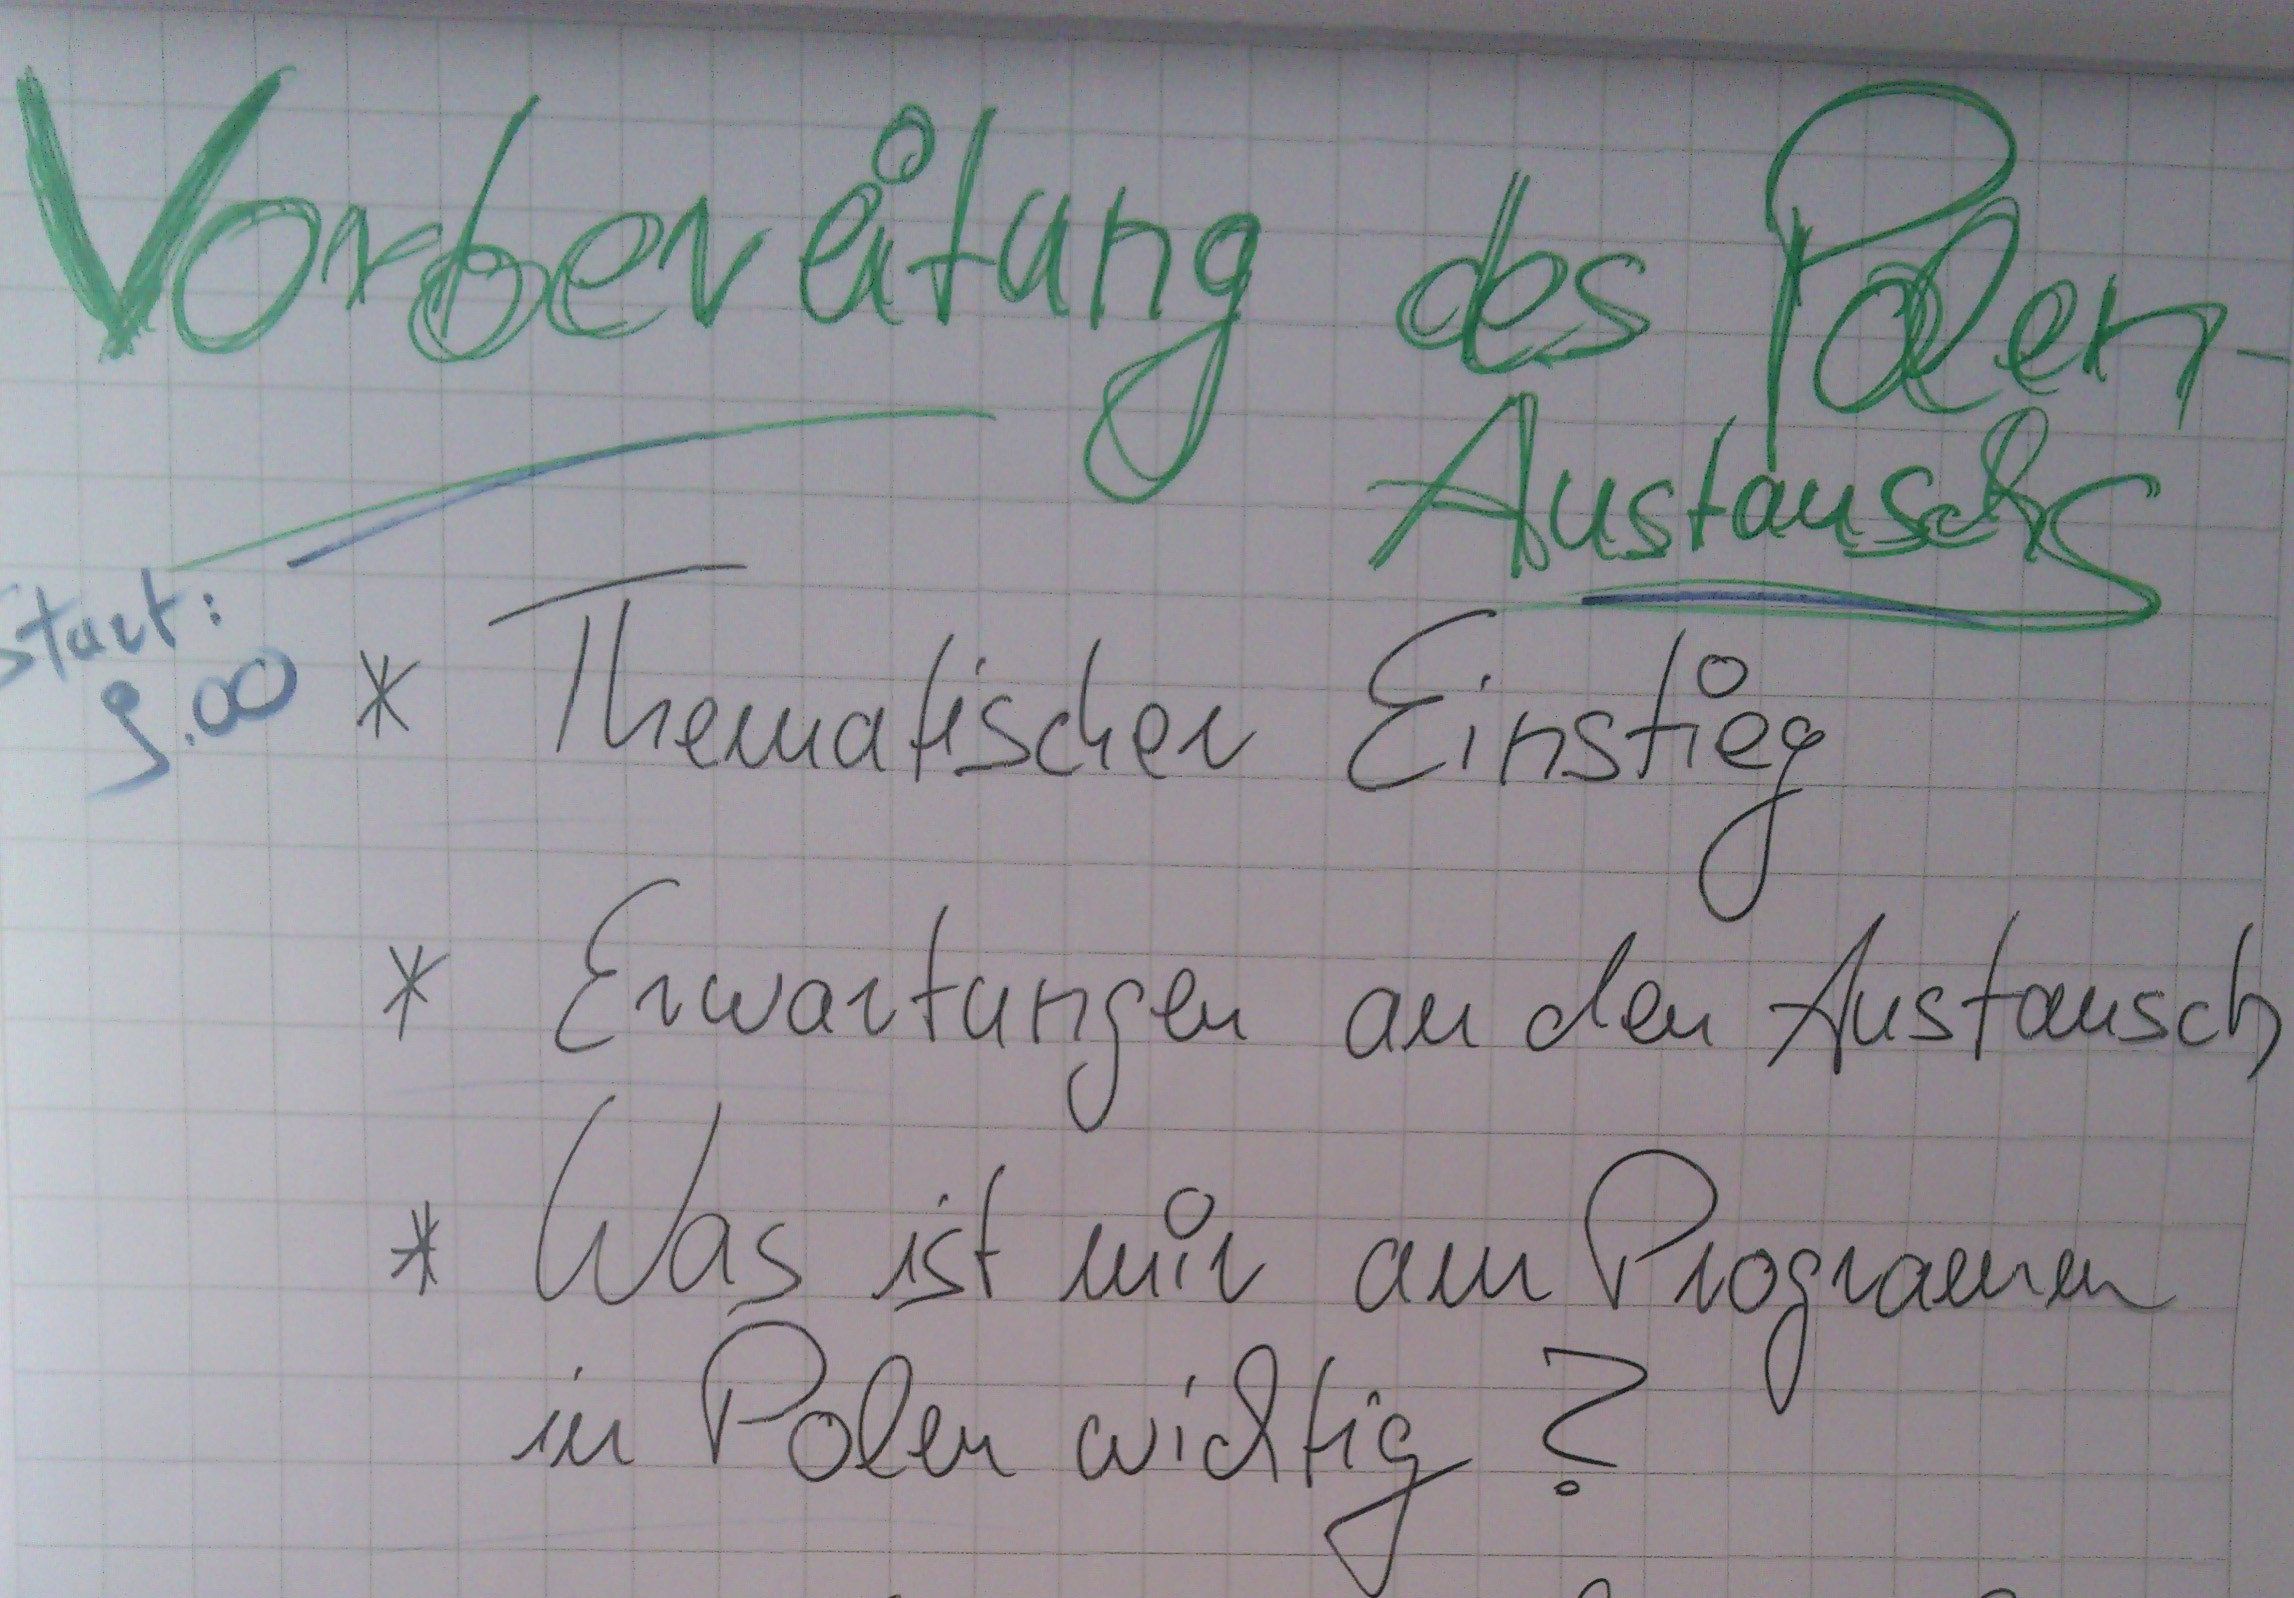 Vorbereitung des Polen-
Austauschs
Start:
9.00
* Thematischer Einstieg
* Erwartungen an den Austausch
* Was ist mir am Programm
in Polen wichtig?